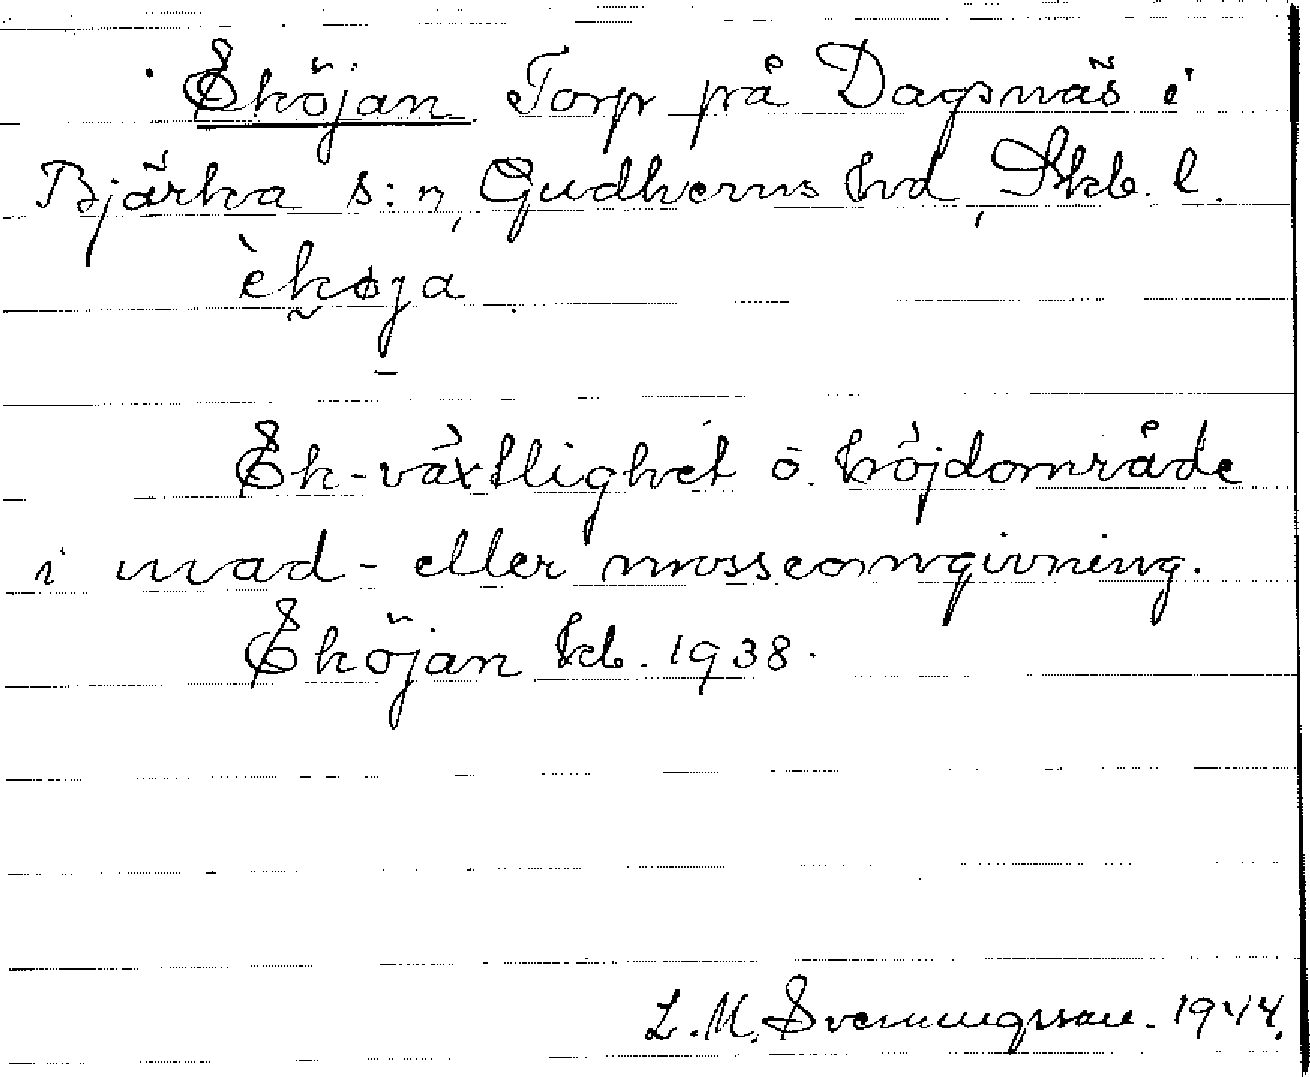 Eköjan Torp på Dagsnäs i
Bjärka s:n, Gudhems hd, Skb. l.
èkøja
Ek-växtlighet o. höjdområde
i mad- eller mosseomgivning.
Eköjan kb. 1938.
L. M. Svenungsson. 1944.